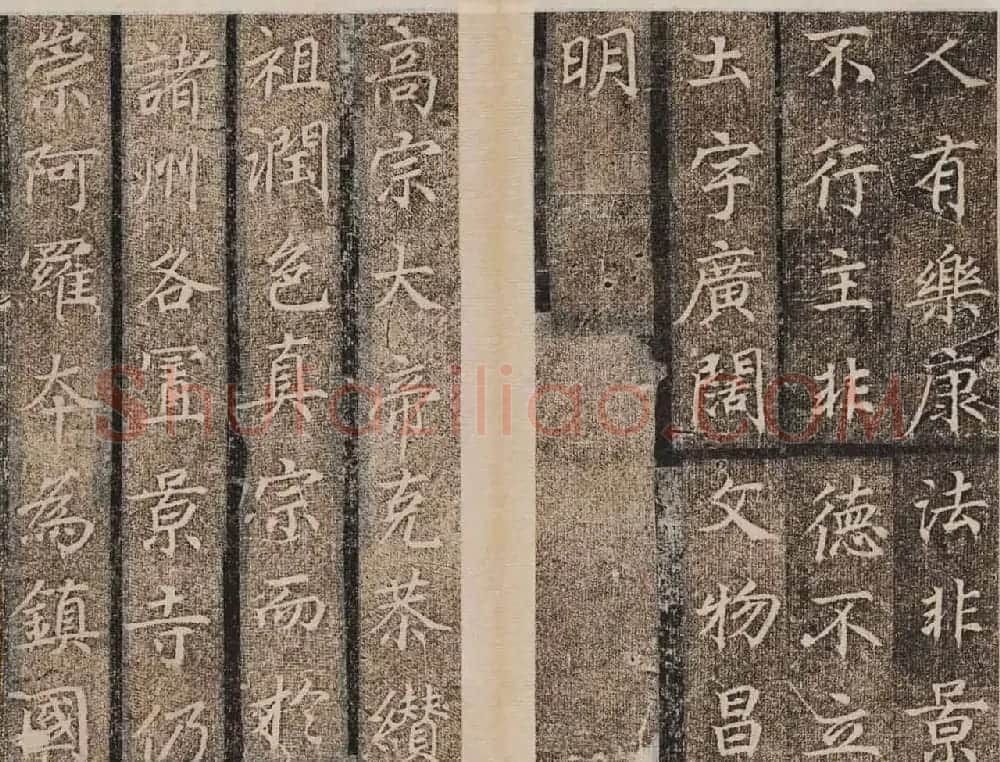 人有樂康法非景
不行主非德不立
土宇廣闊文物昌
明
高宗大帝克恭纘
祖潤色真宗而於
諸州各置景寺仍
崇阿羅本為鎮國
Shufaziliao.COM